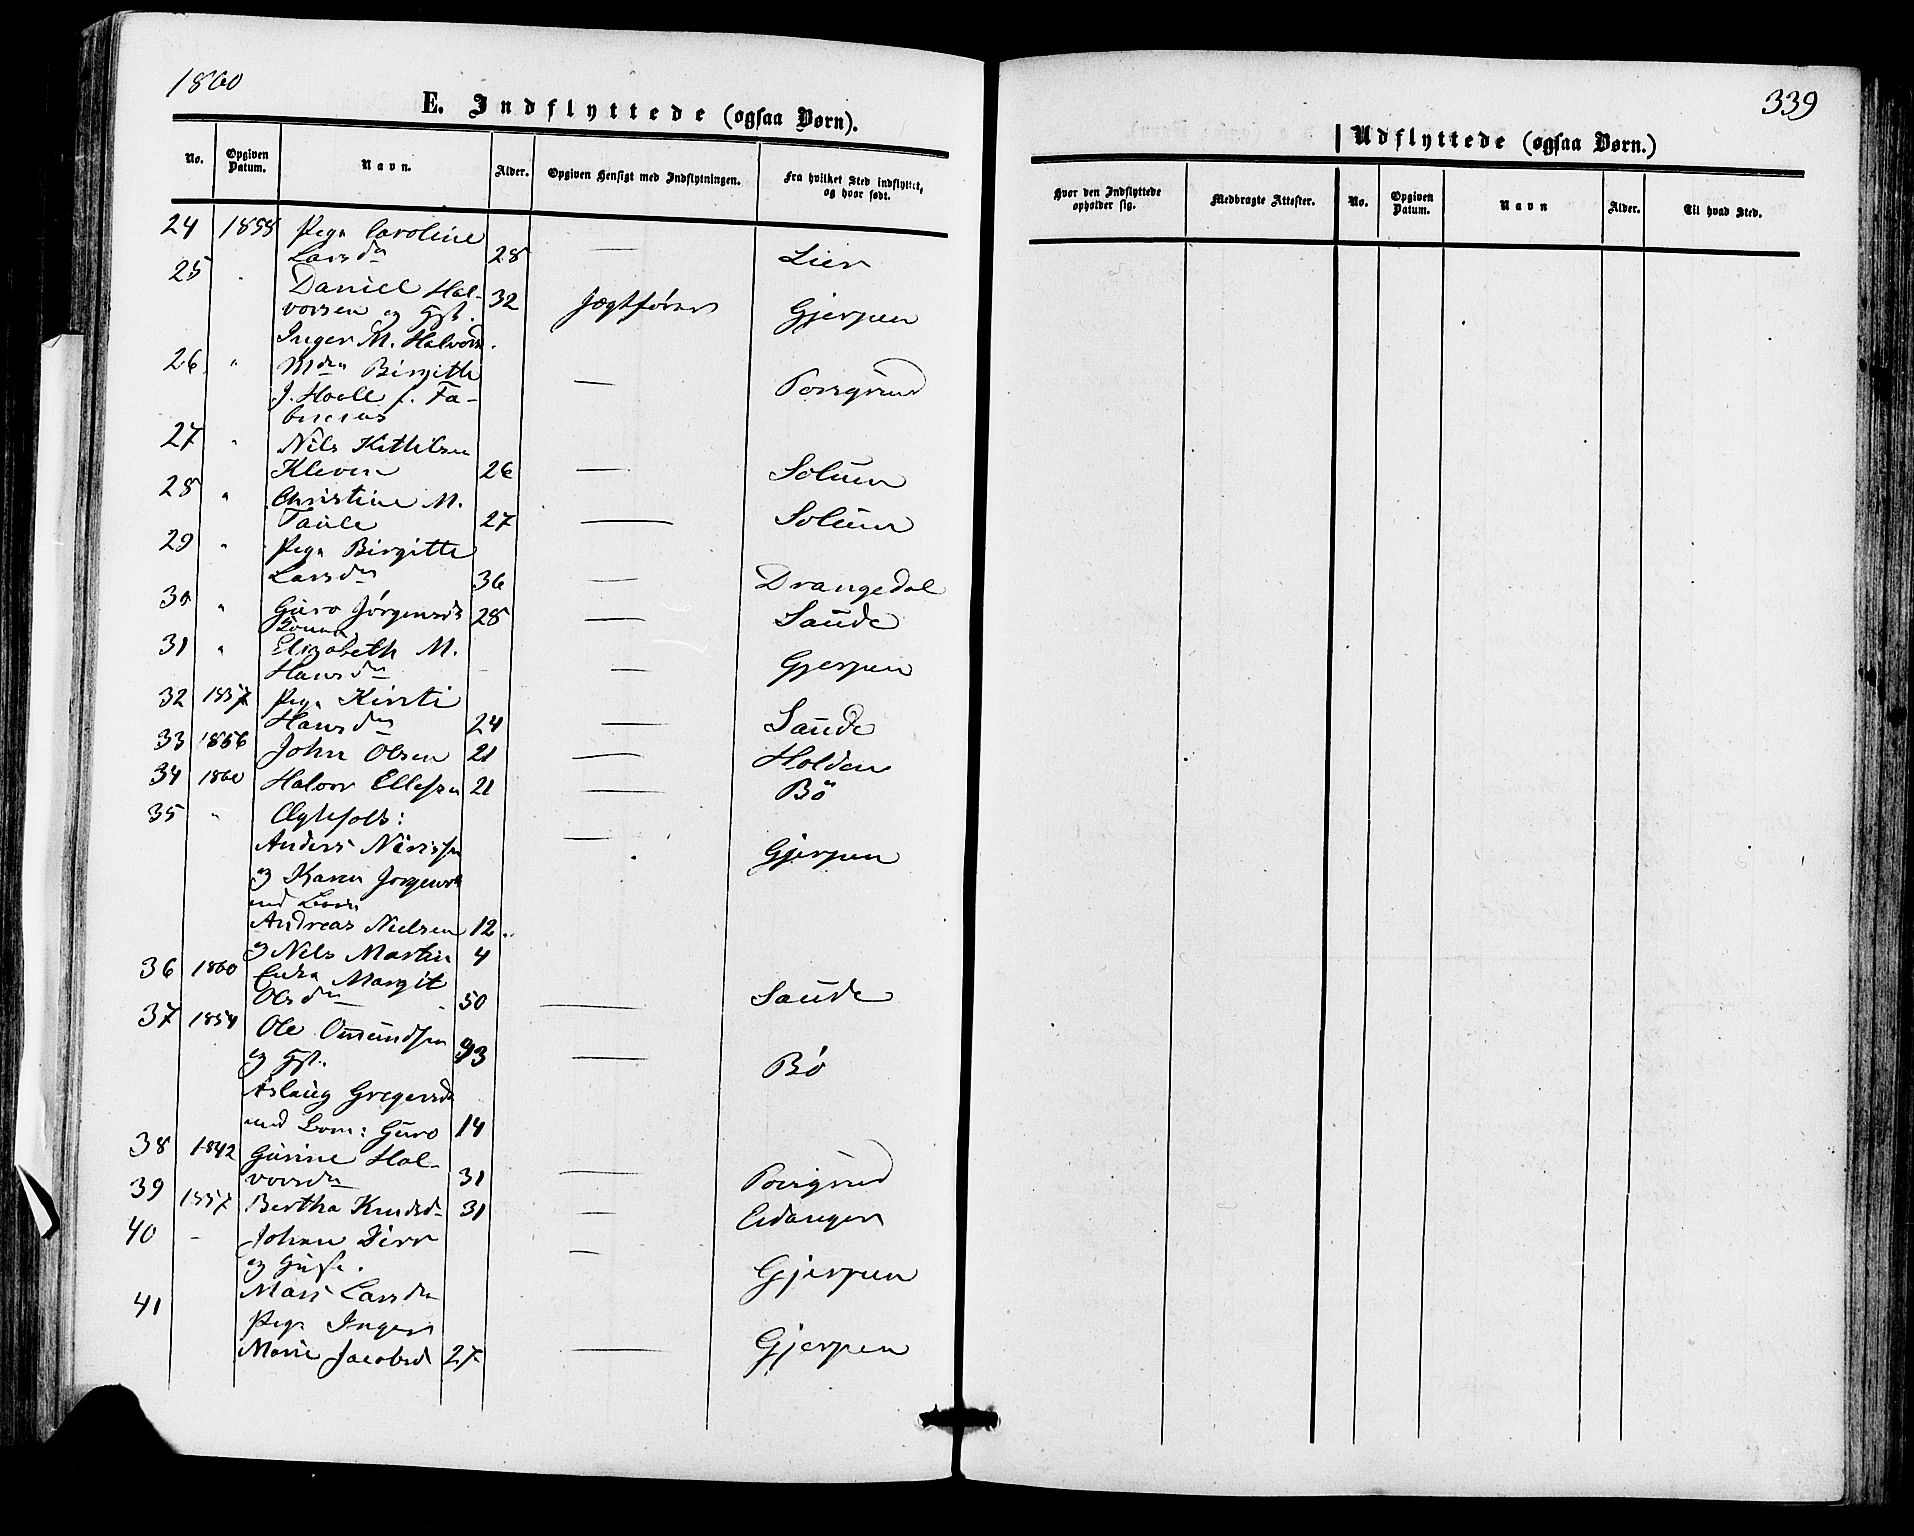 1860
339
E. Indflyttede (ogsaa Børn).
No. Opgiven Datum. Navn. Alder. Opgiven Hensigt med Indflytningen. Fra hvilket Sted indflyttet, og hvor født.
Hvor den Indflyttede opholder sig. Medbragte Attester. No. Opgiven Datum. Navn Alder. Til hvad Sted.
Udflyttede (ogsaa Børn.)
24 1858 Pige Caroline
Larsdr 28 — Lier
25 Daniel Hal-
vorsen og Gst. 32 Jægtfører Gjerpen
Inger M. Halvors.
26 " Birgitte — Porsgrund
J. Houll f. Fa-
bricius
27 " Nils Kittilsen
Kleven 26 — Solum
28 " Christine M.
Taule 27 — Solum
29 " Pige Birgitte
Larsdr 36 — Drangedal
30 " Guro Jørgensd 28 — Saude
31 " Elizabeth M.
Hansdr — Gjerpen
32 1857 Pige Kirsti
Hansdr 24 — Saude
33 1856 John Olsen 21 — Holden
34 1860 Halvor Ellefsen 21 — Bö
35 " Ægtefolk:
Anders Nirissen — Gjerpen
og Karen Jörgensd
med Börn
Andreas Nielsen 12
og Nils Martin 4
36 1860 Enke Margit
Olsdr 50 — Saude
37 1854 Ole Omundsen
og Gst. 93 — Bö
Aslaug Gregersd
med Barn: Guro 14
38 1842 Gurine Hal-
vorsdr 31 — Porsgrund
39 1857 Bertha Knudsd 31 — Eidanger
40 - Johan
og Gust. — Gjerpen
Mari Larsdr
41 Pige Inger
Marie Jacobsd 27 — Gjerpen